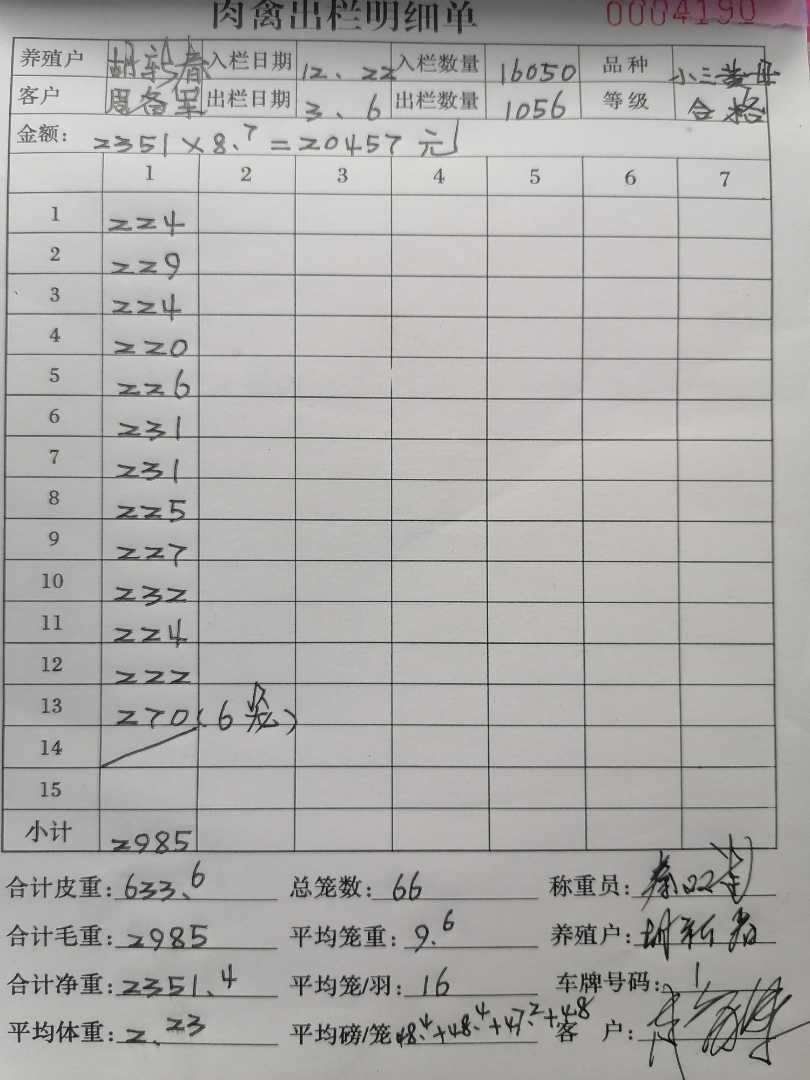 肉禽出栏明细单 0004190
养殖户 胡新春 入栏日期 12、22 入栏数量 16050 品种 小三黄母
客户 出栏日期 3、6 出栏数量 1056 等级 合格
金额: 2351×8.7=20457元
1 2 3 4 5 6 7
1 224
2 229
3 224
4 220
5 226
6 231
7 231
8 225
9 227
10 232
11 224
12 222
13 270(6笼)
14
15
小计 2985
合计皮重: 633.6 总笼数: 66 称重员:
合计毛重: 2985 平均笼重: 9.6 养殖户: 胡新春
合计净重: 2351.4 平均笼/羽: 16 车牌号码: 1
平均体重: 2.23 平均磅/笼 48.4+48.4+47.2+48 客户: